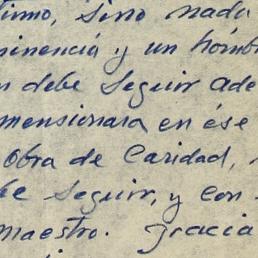 timo, sino nada
minencia y un hómb
n debe seguir ade
mensionara en ése
obra de Caridad,
be seguir, y con
maestro. gracia